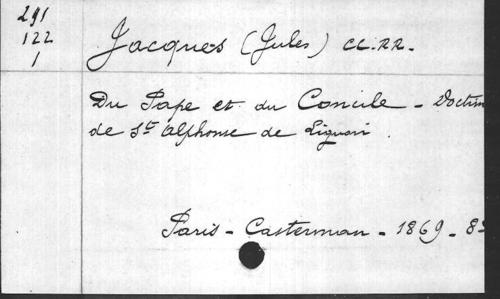 291
122
1
Jacques (Jules) CC.RR.
Du Pape et du Concile - Doctrin
de St Alphonse de Liguori.
Paris - Casterman - 1869 - 8º